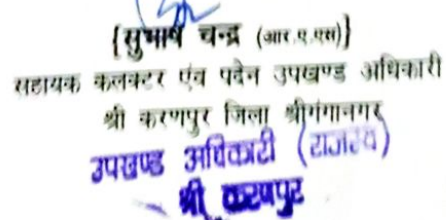 {सुभाष चन्द्र (आर.ए.एस)}
सहायक कलक्टर एंव पदेन उपखण्ड अधिकारी
श्री करणपुर जिला श्रीगंगानगर
उपखण्ड अधिकारी (राजस्व)
श्री करणपुर